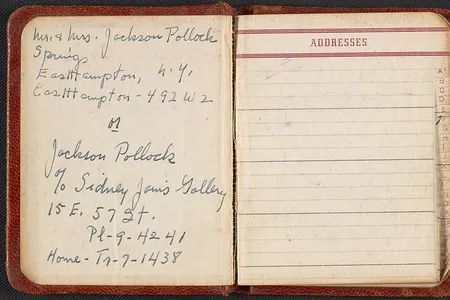 Mr. & Mrs. Jackson Pollock
Springs
EastHampton, N.Y.
EastHampton - 492 W 2
or
Jackson Pollock
c/o Sidney Janis Gallery
15 E. 57 St.
Pl-9-4241
Home - Tr-7-1438
ADDRESSES
A
B
C
D
E
F